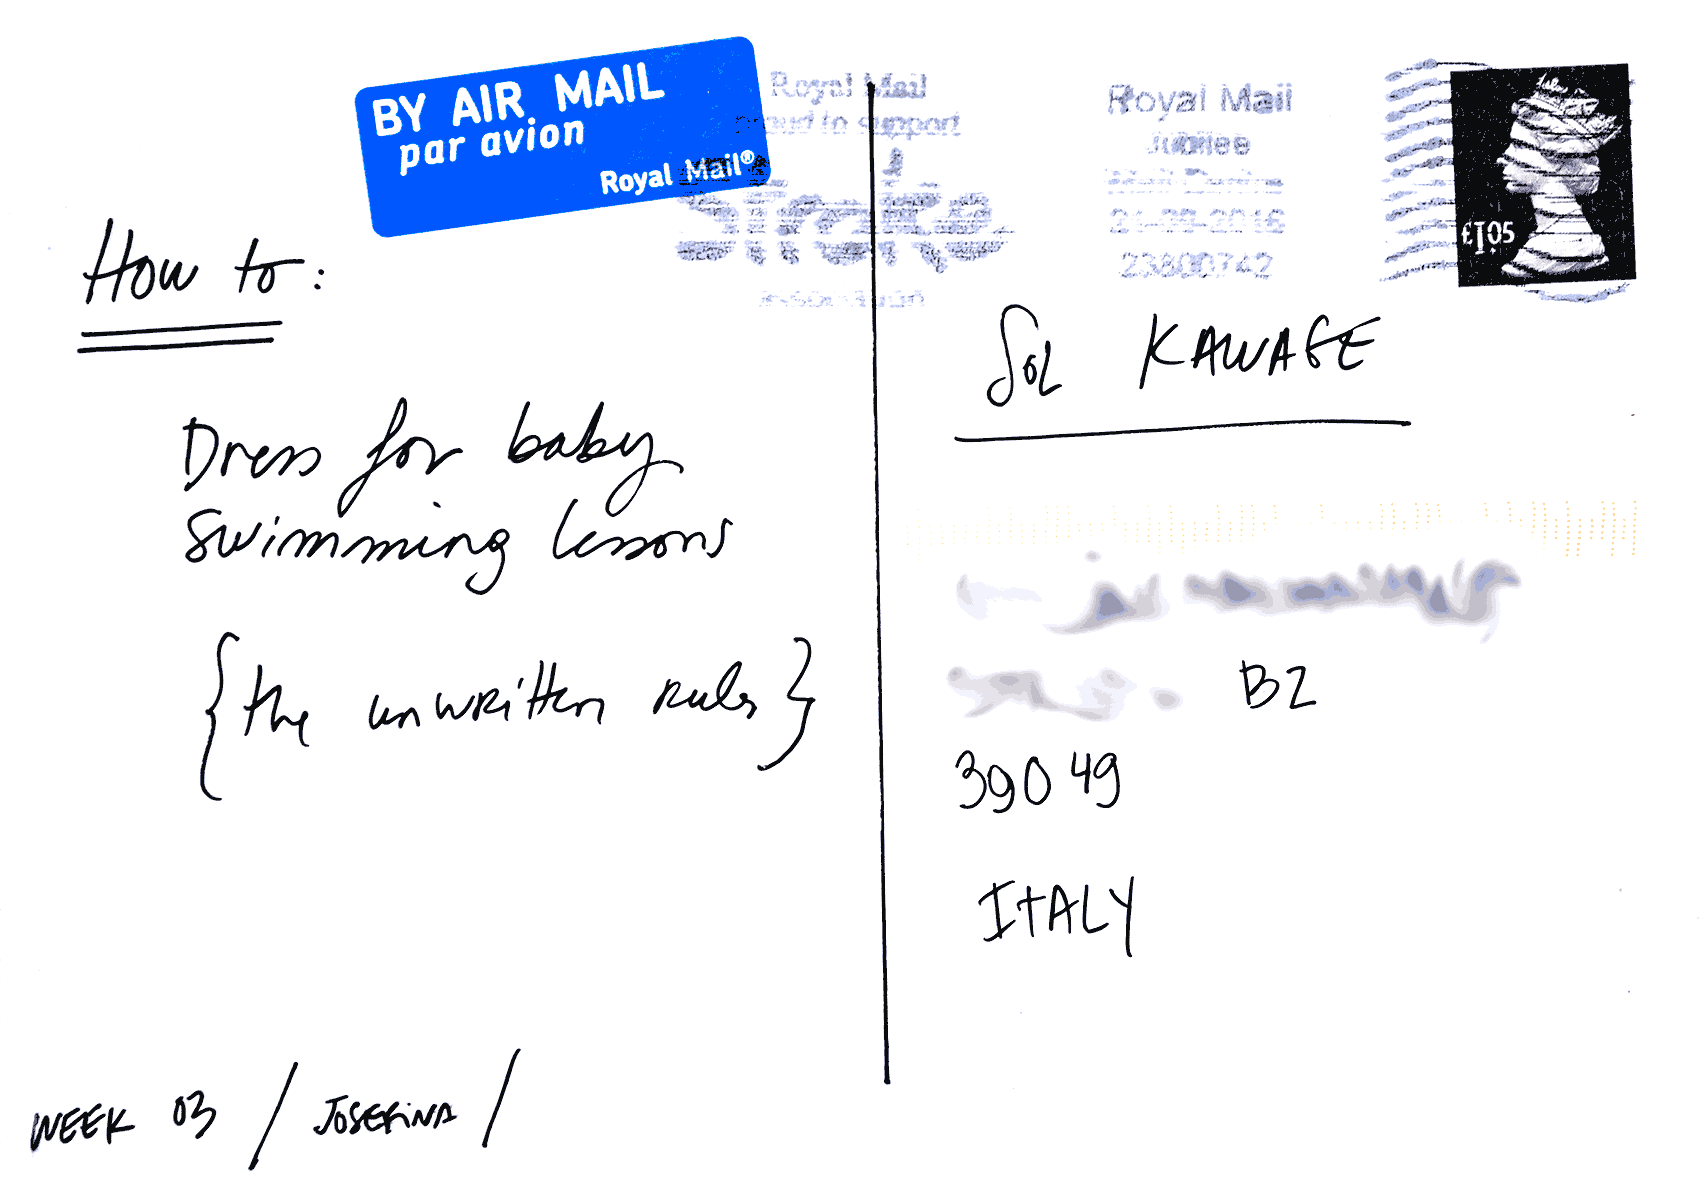 BY AIR MAIL
par avion
Royal Mail®
Royal Mail
proud to support
Stroke
Association
Royal Mail
Jubilee
Mail Centre
21-09-2016
23800742
£1.05
How to:
Dress for baby
swimming lessons
{the unwritten rules}
WEEK 03 / JOSEFINA /
Sol KAWAGE
BZ
39049
ITALY